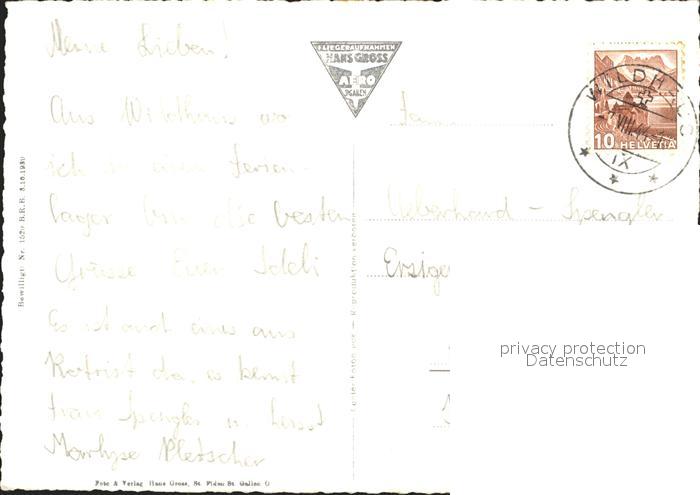 Meine Lieben!
Aus Wildhaus wo
ich in einem Ferien-
lager bin die besten
Grüsse Euer Ideli
Es ist auch eines aus
Rotrist da, es kennt
Frau Spengler u. lässt
Marlyse Pletscher
Foto & Verlag Hans Gross, St. Fiden-St. Gallen O
Bewilligt: Nr. B.R.B. 3.10.1939
FLIEGERAUFNAHMEN
HANS GROSS
AERO
ST. GALLEN
Reproduktion verboten
Fam.
Ueberhard - Spengler
WILDHAUS
VIII
IX
10 HELVETIA
privacy protection
Datenschutz